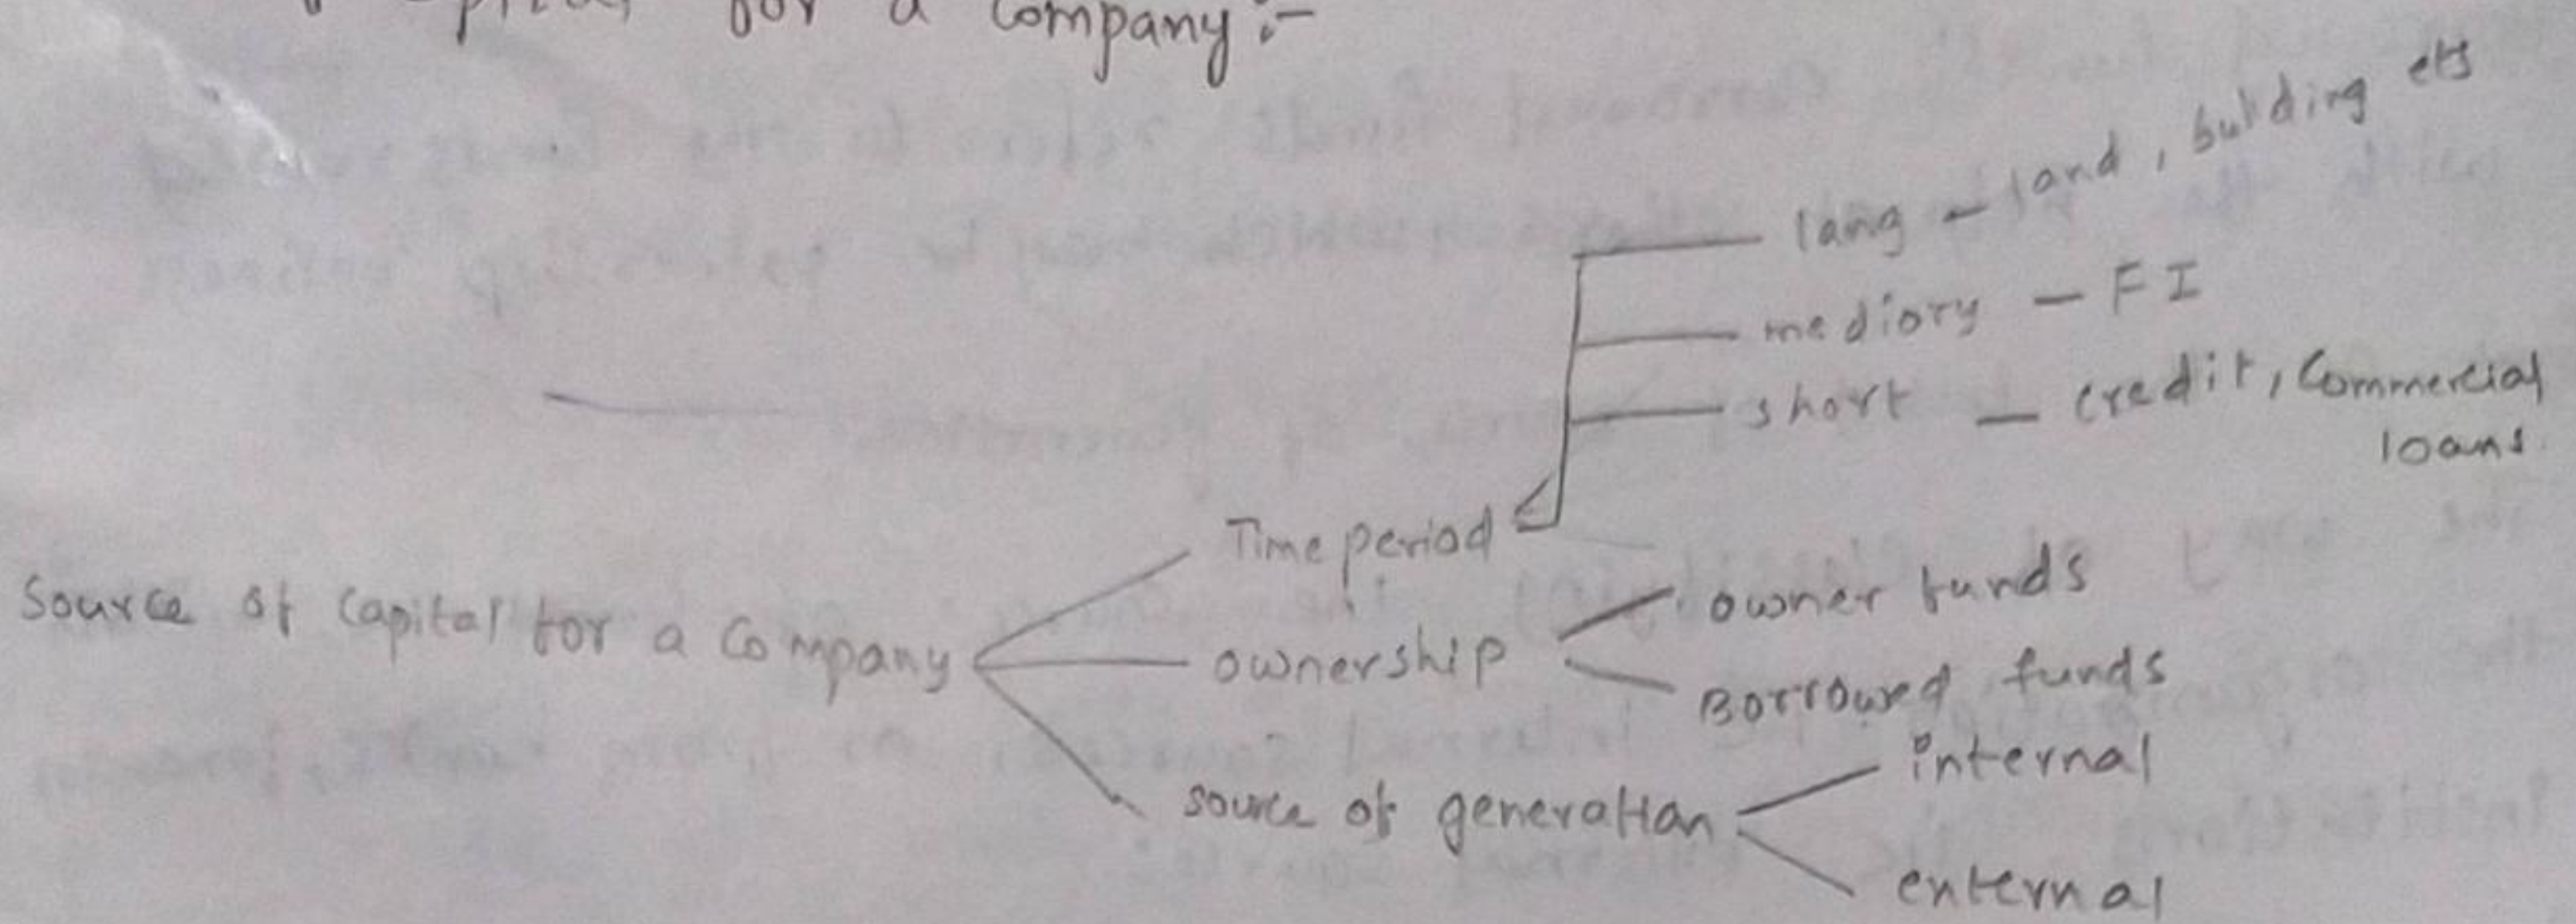 for a Company :-
lang - land, building ets
mediory - FI
short - credit, Commercial
loans.
Time period
Source of Capital for a Company
ownership
owner funds
Borrowed funds
source of generation
internal
enternal